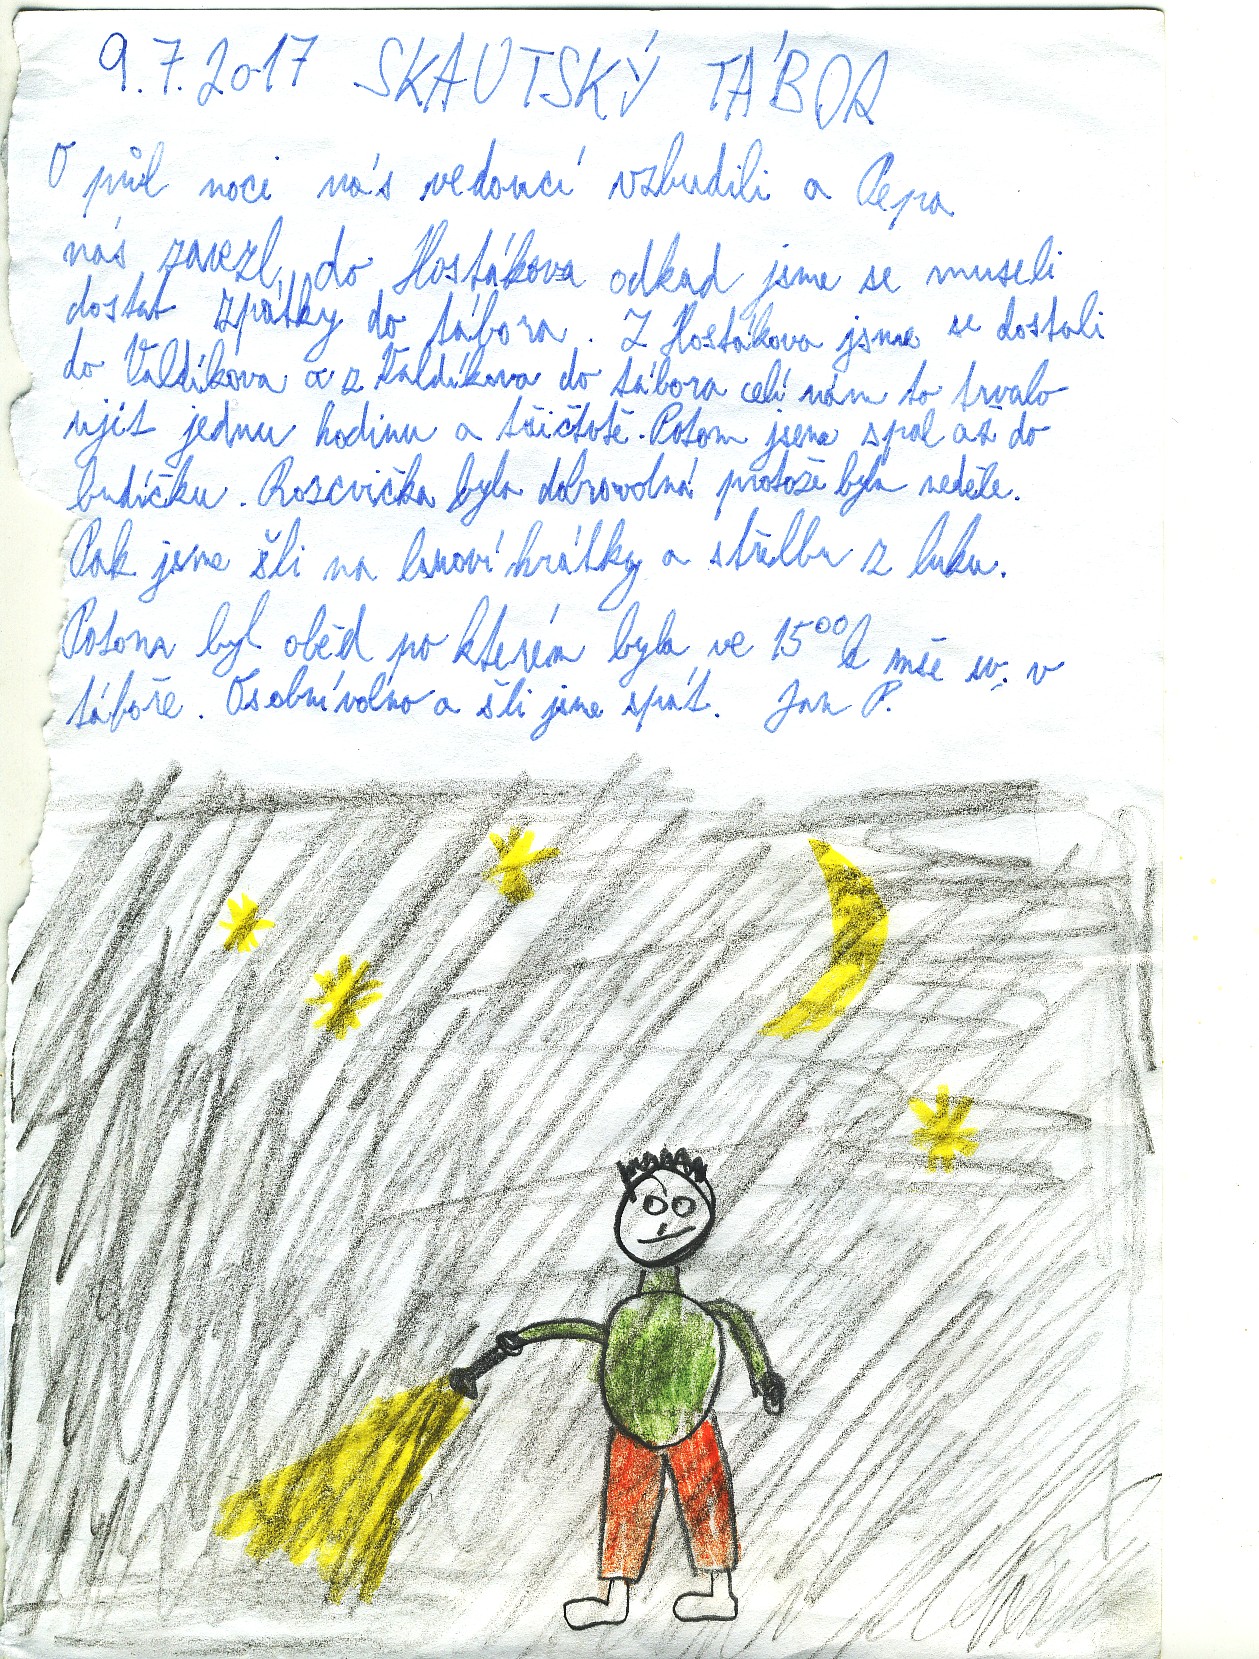 9.7.2017 SKAUTSKÝ TÁBOR
O půl noci nás vedoucí vzbudili a Pepa
nás zavezl do Hostákova odkad jsme se museli
dostat zpátky do tábora. Z Hostákova jsme se dostali
do Valdíkova a z Valdíkova do tábora celí nám to trvalo
ujít jednu hodinu a třičtotě. Potom jsme spal až do
budíčku. Rozcvička byla dobrovolná protože byla neděle.
Pak jsme šli na lanoví hrátky a střelbu z luku.
Potom byl oběd po kterém byla ve 15⁰⁰h mše sv. v
táboře. Osobní volno a šli jsme spát. Jan P.